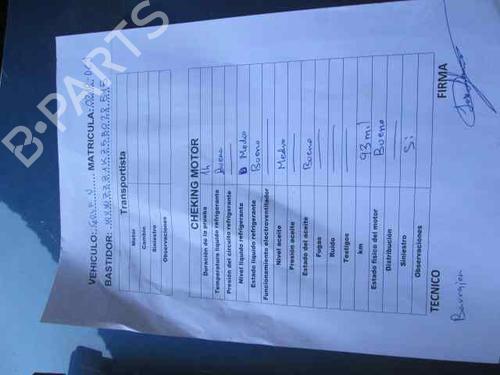 B-PARTS
VEHICULO: GOLF V MATRICULA:
BASTIDOR:
Transportista
Motor
Cambio
Siniestro
Observaciones
CHEKING MOTOR
Duración de la prueba 1h
Temperatura liquido refrigerante Bueno
Presión del circuito refrigerante
Nivel liquido refrigerante Medio
Estado liquido refrigerante Bueno
Funcionamiento electroventilador
Nivel aceite Medio
Presión aceite
Estado del aceite Bueno
Fugas
Ruido
Testigos
km 93 mil
Estado físico del motor Bueno
Distribución
Siniestro Si
Observaciones
TECNICO FIRMA